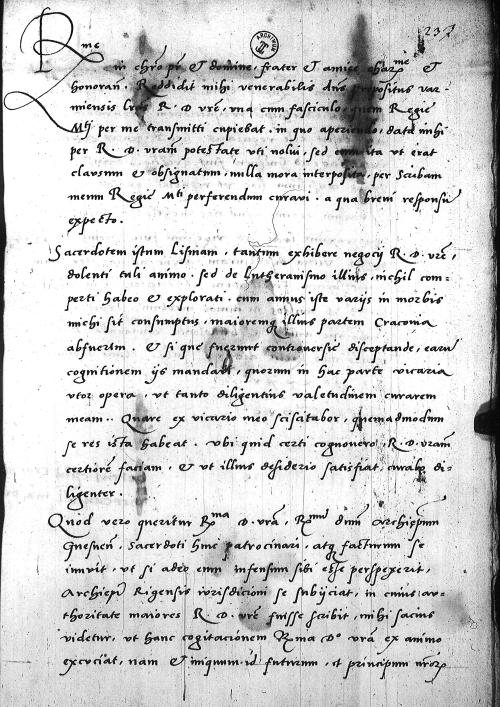 237
R.me
in chro pr et domine, frater et amice char.me et
honoran. Reddidit mihi venerabilis dns prepositus var-
miensis lras R. D. vre, vna cum fasciculo, quem Regie
Mti per me transmitti cupiebat. in quo aperiendo, data mihi
per R. D. vram potestate vti nolui, sed vt erat
clausum et obsignatum, nulla mora interposita, per Scribam
meum Regie Mti perferendum curaui. a qua breui responsu
expecto.
Sacerdotem istum Lismam, tantum exhibere negocij R. D. vre,
dolenti tuli animo. sed de Lutheranismo illius, nichil com-
perti habeo et explorati. cum annus iste varijs in morbis
michi sit consumptus, maioremq illius partem Cracouia
abfuerim. Et si que fuerunt controuersie disceptande, earu
cognitionem ijs mandaui, quorum in hac parte vicaria
vtor opera, vt tanto diligentius valetudinem curarem
meam. Quare ex vicario meo sciscitabor, quemadmodum
se res ista habeat. vbi quid certi cognouero, R. D. vram
certiore faciam, et vt illius desiderio satisfiat, curabo di-
ligenter.
Quod vero queritur R.ma D. vra, R.mum dnm Archiepum
Gnesnen. Sacerdoti huic patrocinari, atq facturum se
innuit, vt si adeo eum infensum sibi esse perspexerit,
Archiepi Rigensis iurisdicioni se subijciat, in cuius au-
thoritate maiores R. D. vre fuisse scribit, mihi sacius
videtur, vt hanc cogitacionem R.ma D. vra ex animo
excuciat, nam et iniquum id futurum, et principum nror